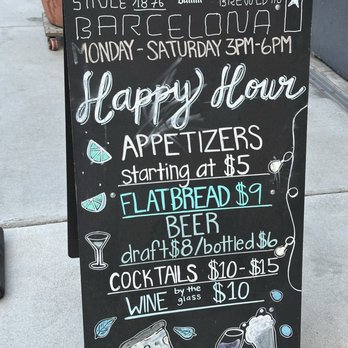 SINCE 1876 Damm BREWED IN
BARCELONA
MONDAY - SATURDAY 3PM-6PM
Happy Hour
APPETIZERS
starting at $5
FLATBREAD $9
BEER
draft $8/bottled $6
COCKTAILS $10-$15
WINE by the glass $10